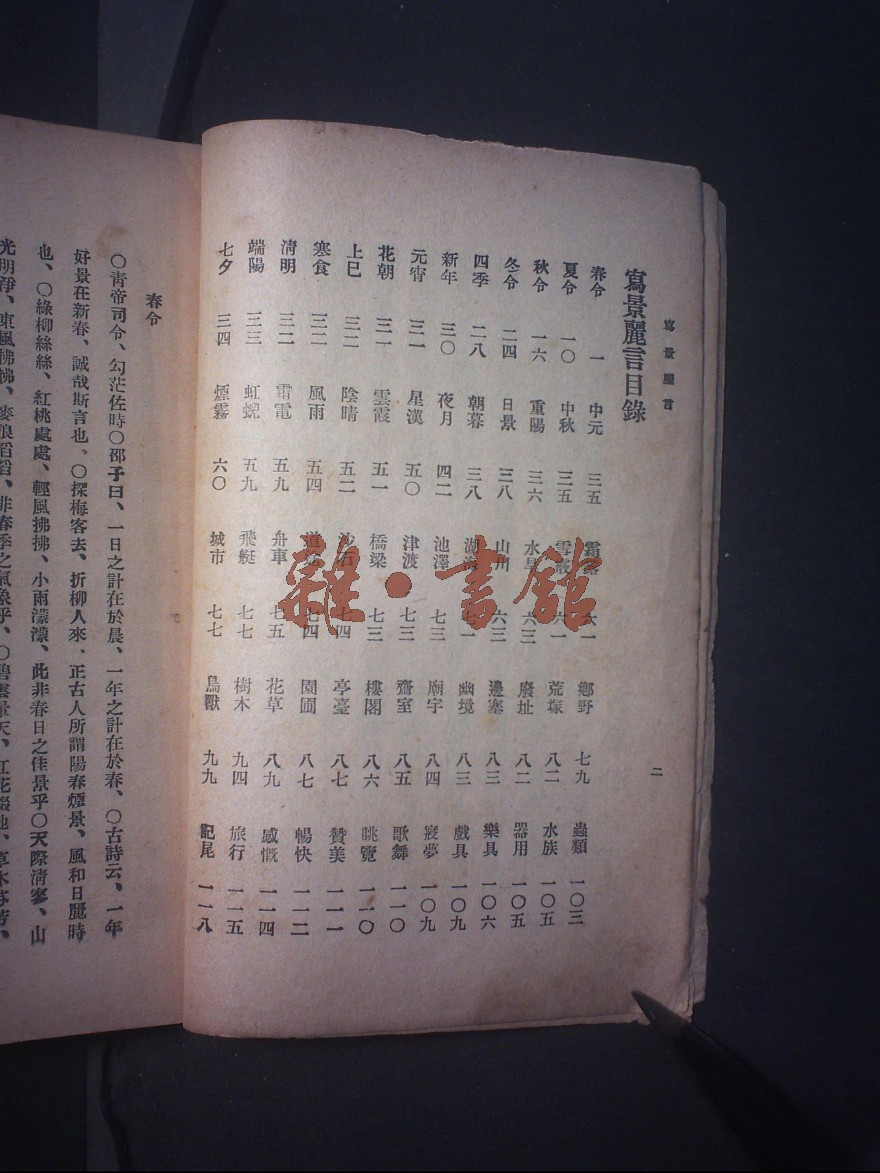 寫景麗言
二
寫景麗言目錄
春令 一 中元 三五 霜露 六一 鄉野 七九 蟲類 一〇三
夏令 一〇 中秋 三五 雪 六一 荒塚 八二 水族 一〇五
秋令 一六 重陽 三六 水 六三 廢址 八二 器用 一〇五
冬令 二四 日景 三八 山川 六三 邊塞 八三 樂具 一〇六
四季 二八 朝暮 三八 湖海 七一 幽境 八三 戲具 一〇九
新年 三〇 夜月 四二 池澤 七三 廟宇 八四 寢夢 一〇九
元宵 三一 星漢 五〇 津渡 七三 齋室 八五 歌舞 一一〇
花朝 三一 雲霞 五一 橋梁 七三 樓閣 八六 眺覽 一一〇
上巳 三二 陰晴 五二 沙石 七四 亭臺 八七 贊美 一一一
寒食 三二 風雨 五四 道 七四 園圃 八七 暢快 一一二
清明 三二 雷電 五九 舟車 七五 花草 八九 感慨 一一四
端陽 三三 虹蜺 五九 飛艇 七七 樹木 九四 旅行 一一五
七夕 三四 煙霧 六〇 城市 七七 鳥獸 九九 記尾 一一八
雜·書館
春令
〇青帝司令、勾茫佐時〇邵子曰、一日之計在於晨、一年之計在於春、〇古詩云、一年
好景在新春、誠哉斯言也、〇探梅客去、折柳人來、正古人所謂陽春煙景、風和日麗時
也、〇綠柳絲絲、紅桃處處、輕風拂拂、小雨濛濛、此非春日之佳景乎〇天際清寥、山
光明淨、東風拂拂、麥浪滔滔、非春季之氣象乎、〇碧雲暈天、紅花綴地、草木芬芳、